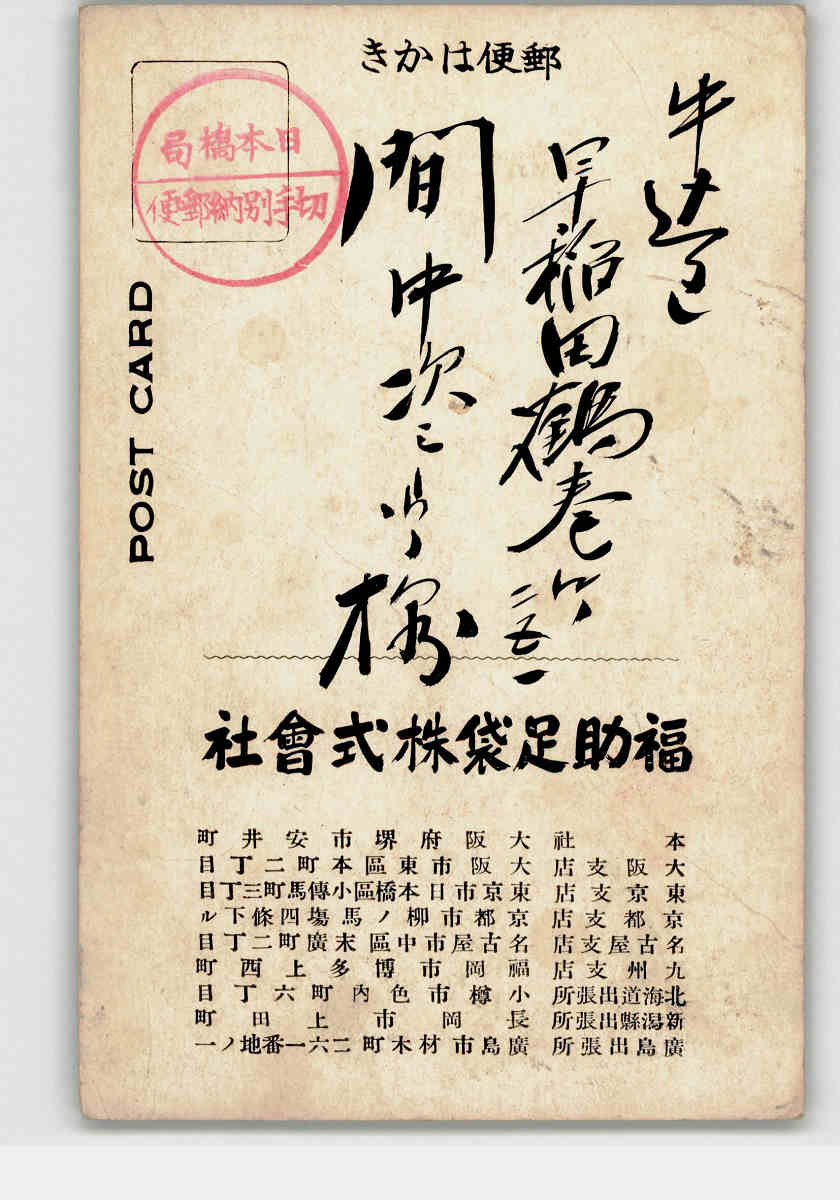 郵便はかき
日本橋局
切手別納郵便
POST CARD
牛込區
早稲田鶴巻町
二五一
間中次三郎様
福助足袋株式會社
本社 大阪府堺市安井町
大阪支店 大阪市東區本町二丁目
東京支店 東京市日本橋區小傳馬町三丁目
京都支店 京都市柳ノ馬塲四條下ル
名古屋支店 名古屋市中區末廣町二丁目
九州支店 福岡市博多上西町
北海道出張所 小樽市色内町六丁目
新潟縣出張所 長岡市上田町
廣島出張所 廣島市材木町二六一番地ノ一